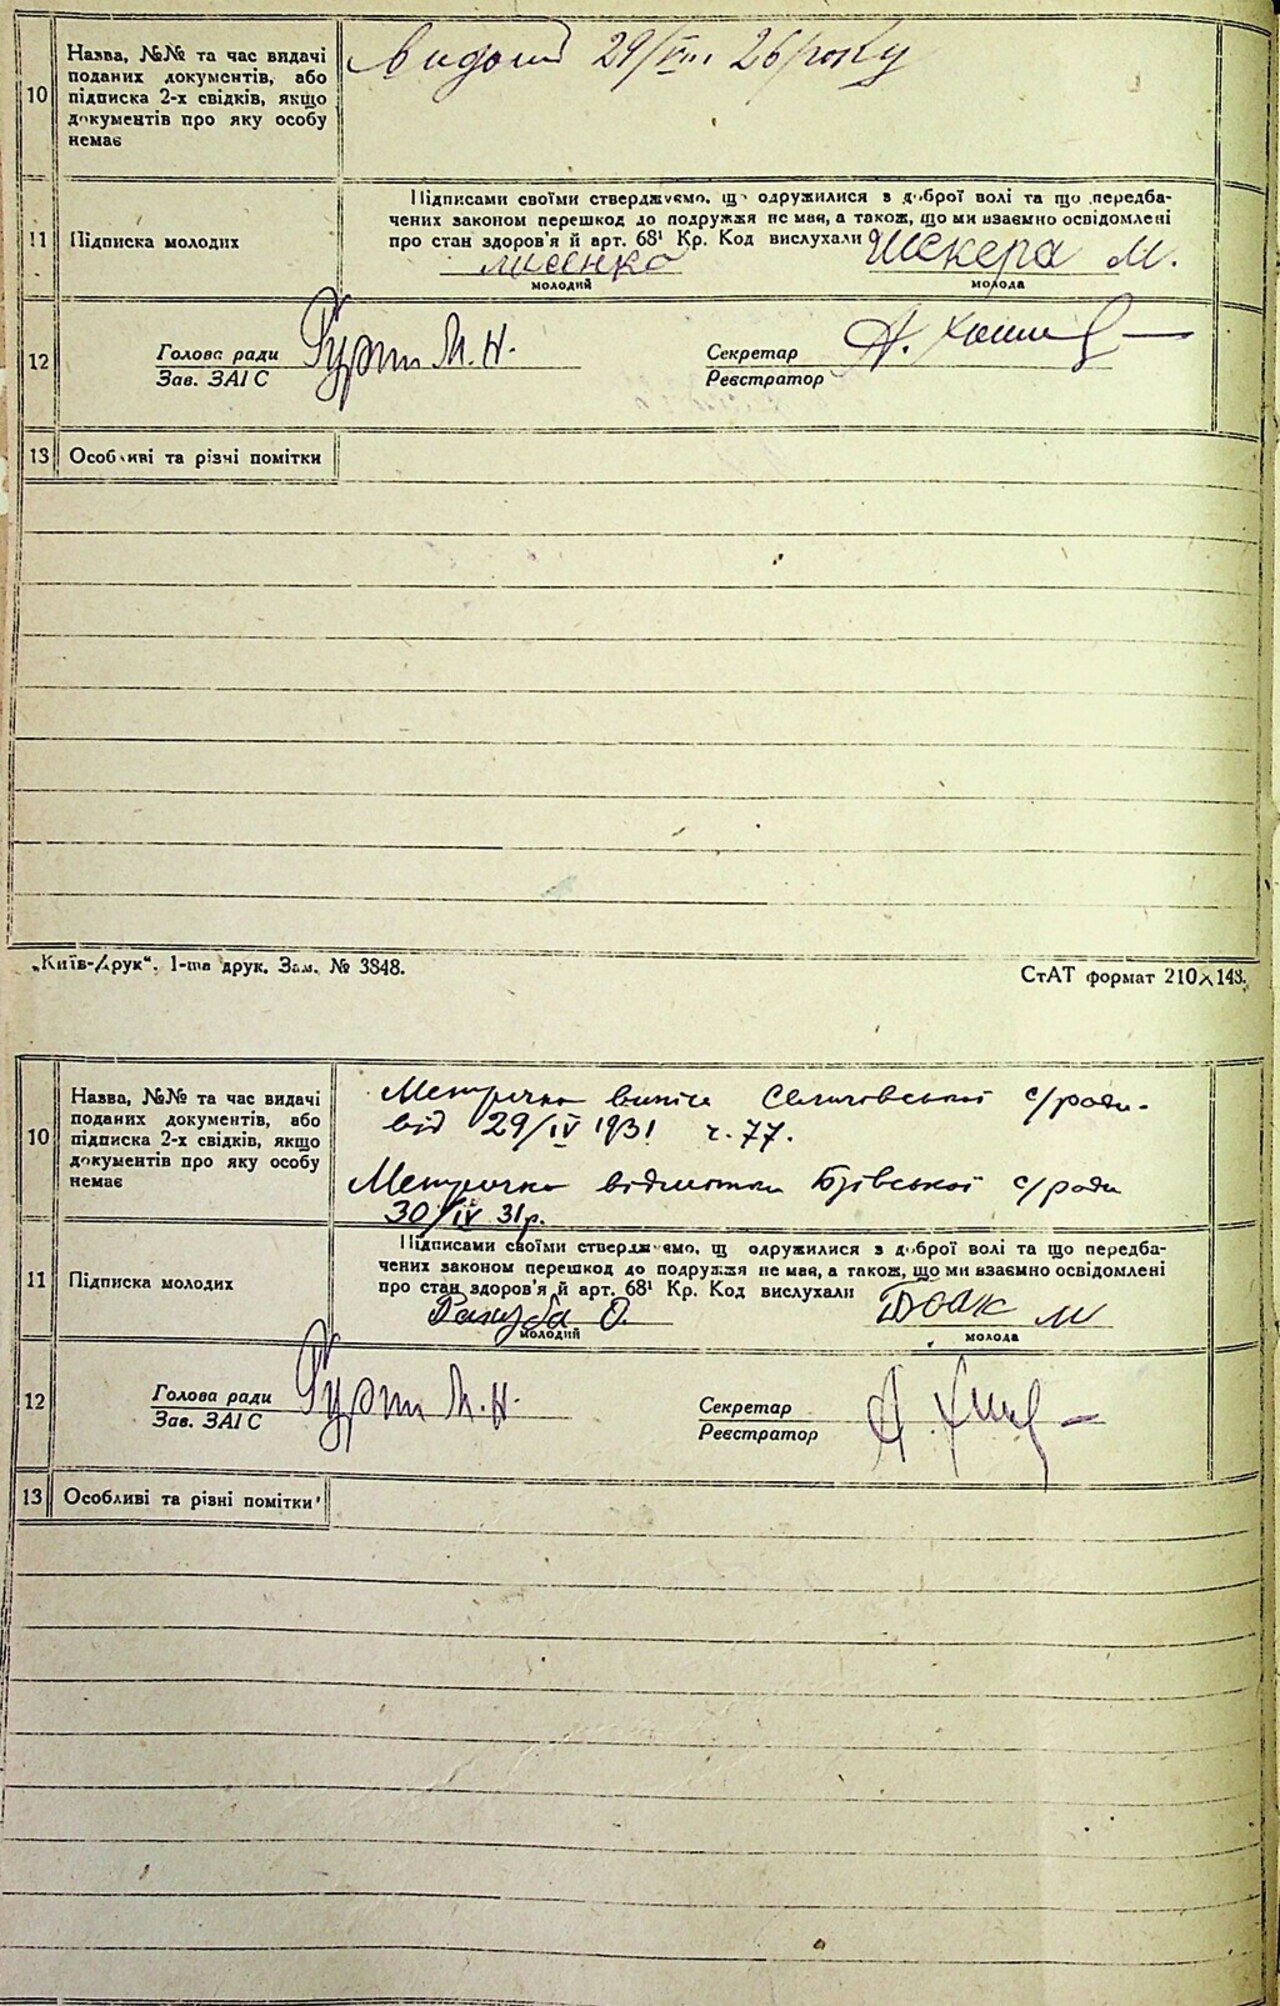 10
Назва, №№ та час видачі
поданих документів, або
підписка 2-х свідків, якщо
документів про яку особу
немає
29/VIII 26 року
11
Підписка молодих
Підписами своїми стверджуємо, що одружилися з доброї волі та що передба-
чених законом перешкод до подружжя не має, а також, що ми взаємно освідомлені
про стан здоров'я й арт. 68¹ Кр. Код вислухали
лисенко
молодий
Шекера М.
молода
12
Голова ради
Зав. ЗАГС
М. Н.
Секретар
Реєстратор
А.
13
Особливі та різні помітки
„Київ-Друк“. 1-ша друк. Зам. № 3848.
СтАТ формат 210×148.
10
Назва, №№ та час видачі
поданих документів, або
підписка 2-х свідків, якщо
документів про яку особу
немає
Метрична випись с/ради.
від 29/IV 1931 ч. 77.
Метрична Бзівської с/ради
30/IV 31р.
11
Підписка молодих
Підписами своїми стверджуємо, що одружилися з доброї волі та що передба-
чених законом перешкод до подружжя не має, а також, що ми взаємно освідомлені
про стан здоров'я й арт. 68¹ Кр. Код вислухали
О.
молодий
М
молода
12
Голова ради
Зав. ЗАГС
М. Н.
Секретар
Реєстратор
А.
13
Особливі та різні помітки